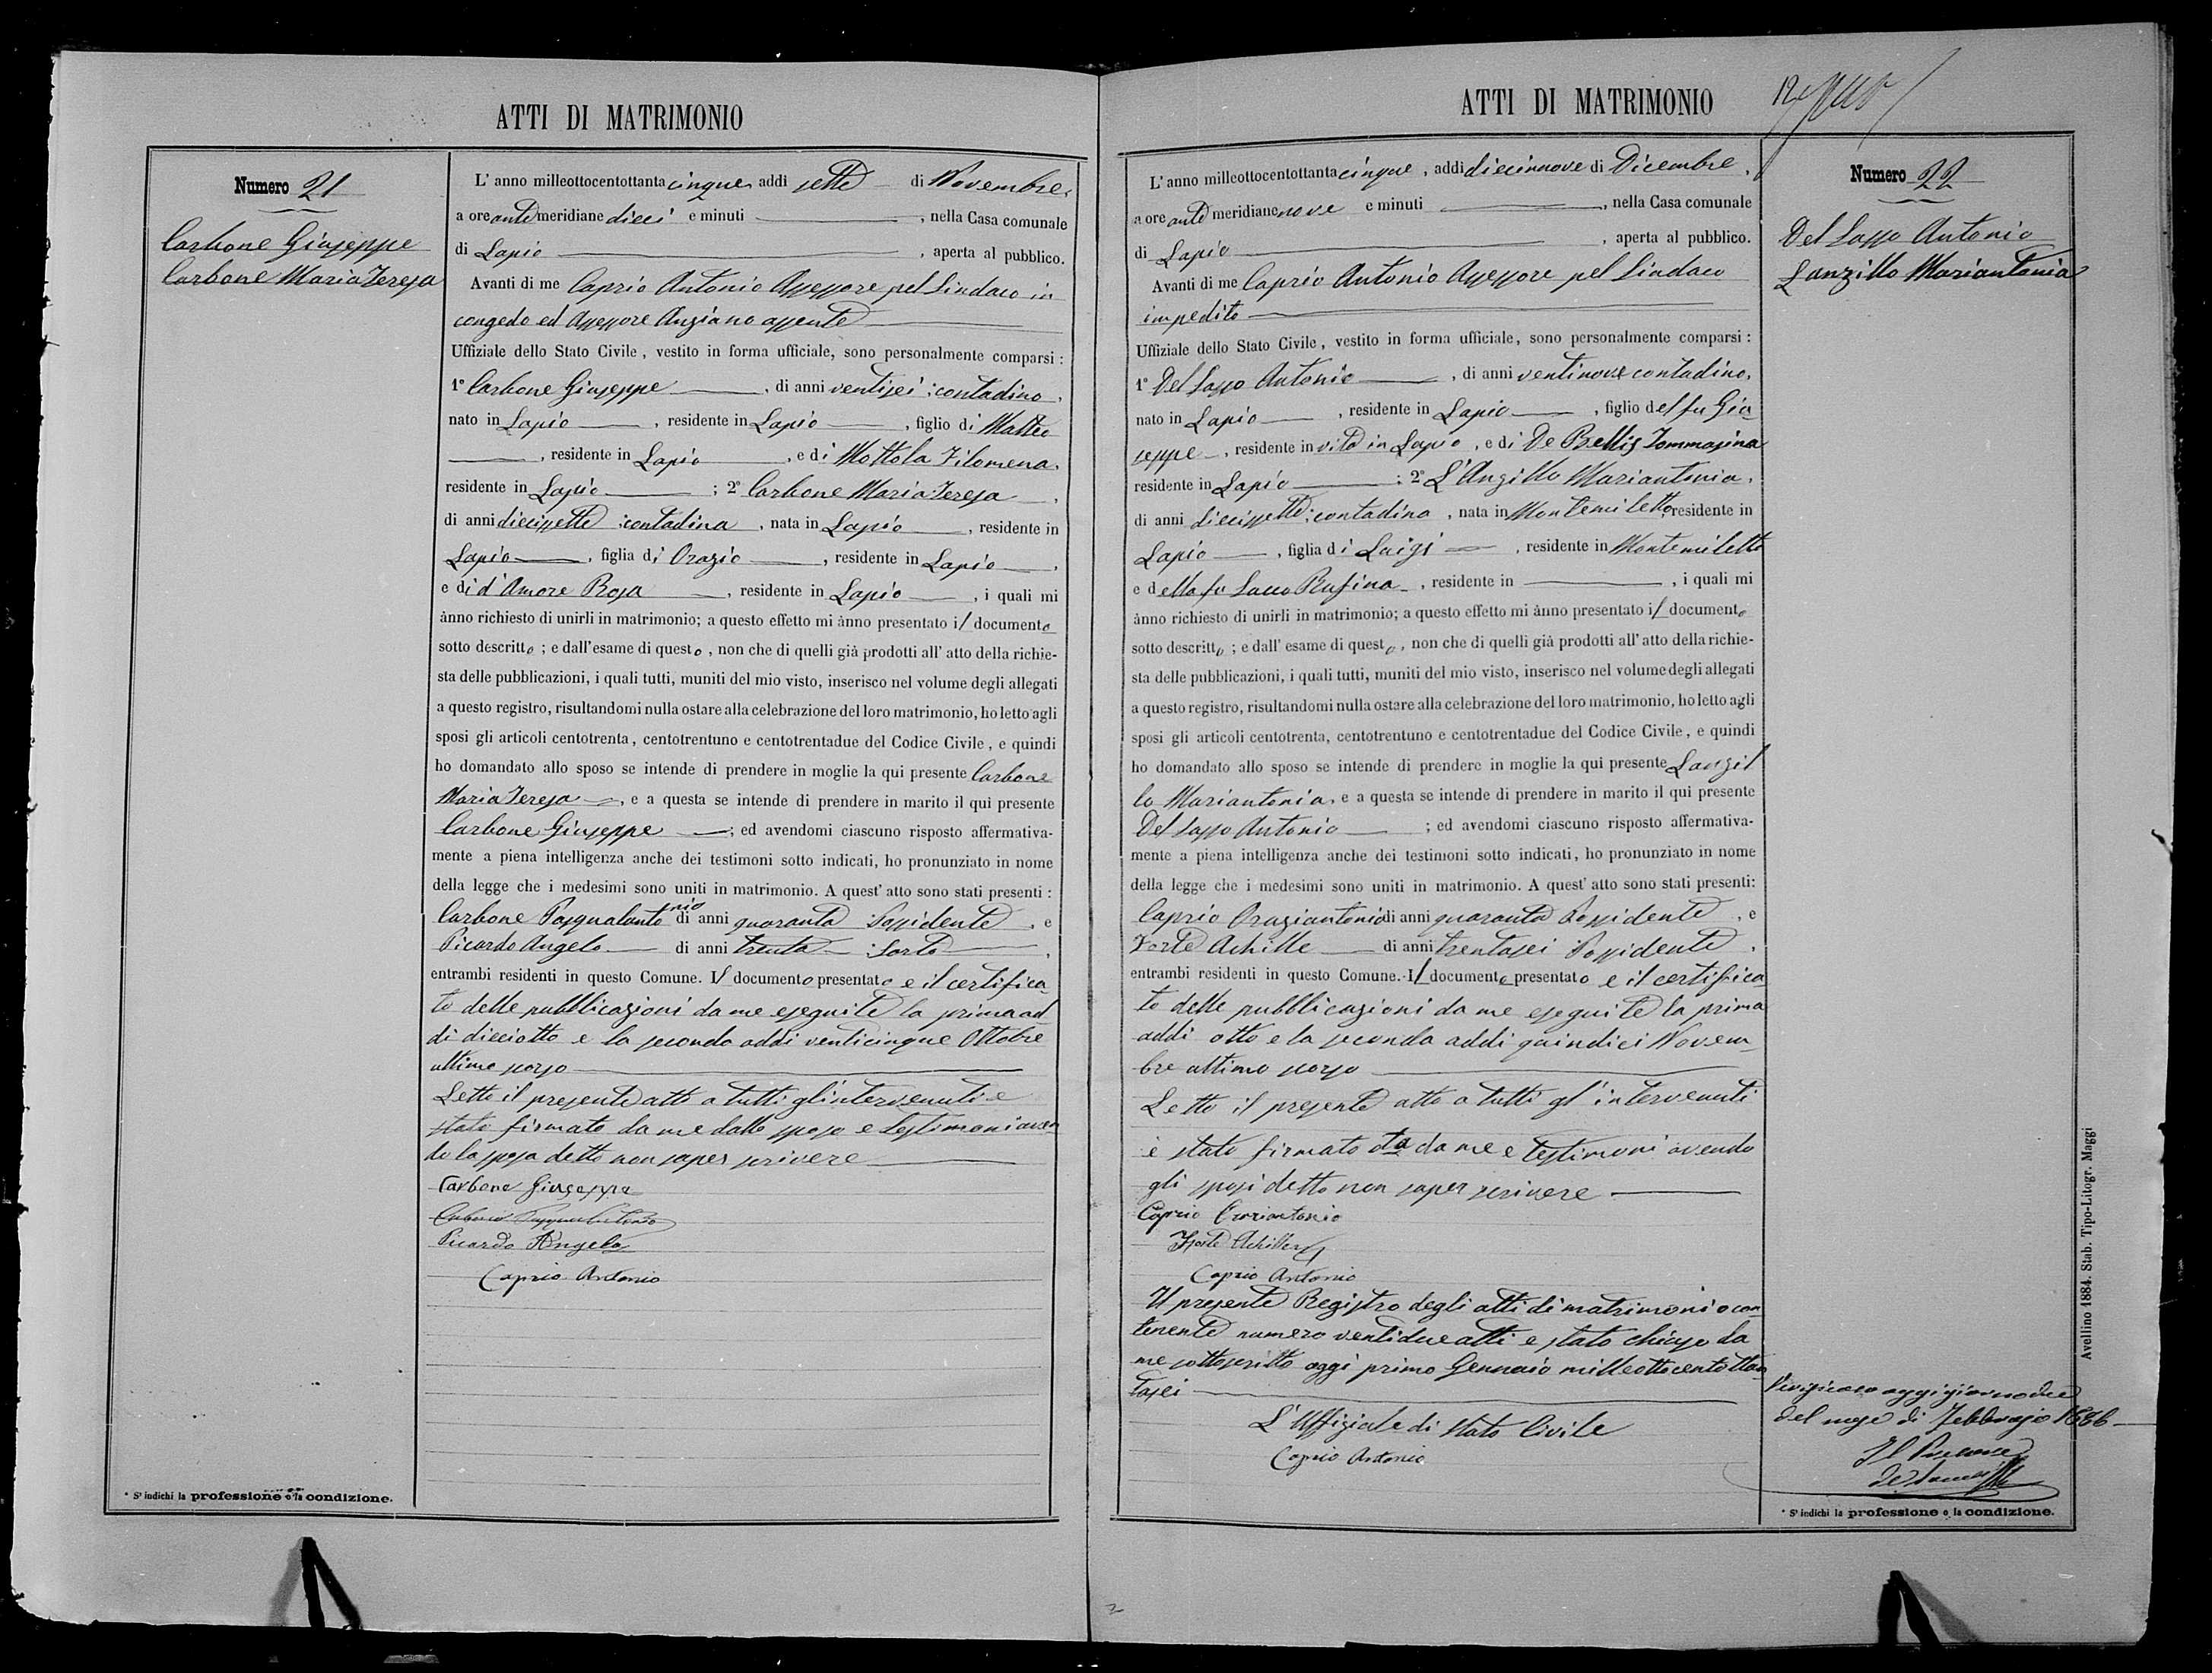 ATTI DI MATRIMONIO
Numero 21
Carbone Giuseppe
Carbone Maria Teresa
L' anno milleottocentottantacinque, addi sette di Novembre,
a ore antemeridiane dieci e minuti , nella Casa comunale
di Lapio , aperta al pubblico.
Avanti di me Caprio Antonio Assessore pel Sindaco in
congedo ed Assessore Anziano assente
Uffiziale dello Stato Civile, vestito in forma ufficiale, sono personalmente comparsi:
1° Carbone Giuseppe , di anni ventisei; contadino,
nato in Lapio , residente in Lapio , figlio di Matteo
, residente in Lapio , e di Mottola Filomena,
residente in Lapio ; 2° Carbone Maria Teresa ,
di anni diecissette; contadina , nata in Lapio , residente in
Lapio , figlia di Orazio , residente in Lapio ,
e di d'Amore Rosa , residente in Lapio , i quali mi
ànno richiesto di unirli in matrimonio; a questo effetto mi ànno presentato il documento
sotto descritto; e dall'esame di questo, non che di quelli già prodotti all' atto della richie-
sta delle pubblicazioni, i quali tutti, muniti del mio visto, inserisco nel volume degli allegati
a questo registro, risultandomi nulla ostare alla celebrazione del loro matrimonio, ho letto agli
sposi gli articoli centotrenta, centotrentuno e centotrentadue del Codice Civile, e quindi
ho domandato allo sposo se intende di prendere in moglie la qui presente Carbone
Maria Teresa , e a questa se intende di prendere in marito il qui presente
Carbone Giuseppe ; ed avendomi ciascuno risposto affermativa-
mente a piena intelligenza anche dei testimoni sotto indicati, ho pronunziato in nome
della legge che i medesimi sono uniti in matrimonio. A quest' atto sono stati presenti:
Carbone Pasqualantonio di anni quaranta Possidente , e
Picardo Angelo di anni trenta : Sarto ,
entrambi residenti in questo Comune. Il documento presentato e il certifica
to delle pubblicazioni da me eseguite la prima ad
di dieciotto e la seconda addi venticinque Ottobre
ultimo scorso
Letto il presente atto a tutti gl'intervenuti e
stato firmato da me dallo sposo e testimoni aven
do la sposa detto non saper scrivere
Carbone Giuseppe
Carbone Pasqualantonio
Picardo Angelo
Caprio Antonio
* S' indichi la professione o la condizione.
ATTI DI MATRIMONIO
Numero 22
Del Sasso Antonio
Lanzillo Mariantonia
L' anno milleottocentottantacinque, addi diecinnove di Dicembre,
a ore antemeridiane nove e minuti , nella Casa comunale
di Lapio , aperta al pubblico.
Avanti di me Caprio Antonio Assessore pel Sindaco
impedito
Uffiziale dello Stato Civile, vestito in forma ufficiale, sono personalmente comparsi:
1° Del Sasso Antonio , di anni ventinove contadino,
nato in Lapio , residente in Lapio , figlio del fu Giu
seppe , residente in vita in Lapio , e di De Bellis Tommasina
residente in Lapio ; 2° L'Anzillo Mariantonia,
di anni diecissette; contadina , nata in Montemiletto, residente in
Lapio , figlia di Luigi , residente in Montemiletto
e della fu Sacco Rufina , residente in , i quali mi
ànno richiesto di unirli in matrimonio; a questo effetto mi ànno presentato il documento
sotto descritto; e dall' esame di questo, non che di quelli già prodotti all' atto della richie-
sta delle pubblicazioni, i quali tutti, muniti del mio visto, inserisco nel volume degli allegati
a questo registro, risultandomi nulla ostare alla celebrazione del loro matrimonio, ho letto agli
sposi gli articoli centotrenta, centotrentuno e centotrentadue del Codice Civile, e quindi
ho domandato allo sposo se intende di prendere in moglie la qui presente Lanzil
lo Mariantonia, e a questa se intende di prendere in marito il qui presente
Del Sasso Antonio ; ed avendomi ciascuno risposto affermativa-
mente a piena intelligenza anche dei testimoni sotto indicati, ho pronunziato in nome
della legge che i medesimi sono uniti in matrimonio. A quest' atto sono stati presenti:
Caprio Oraziantonio di anni quaranta Possidente , e
Forte Achille di anni trentasei Possidente ,
entrambi residenti in questo Comune. Il documento presentato e il certifica
to delle pubblicazioni da me eseguite la prima
addi otto e la seconda addi quindici Novem
bre ultimo scorso
Letto il presente atto a tutti gl'intervenuti
è stato firmato da me e testimoni avendo
gli sposi detto non saper scrivere
Caprio Oraziantonio
Forte Achille
Caprio Antonio
Il presente Registro degli atti di matrimonio con
tenente numero ventidue atti e stato chiuso da
me sottoscritto oggi primo Gennaio milleottocentottan
tasei
L'Uffiziale di Stato Civile
Caprio Antonio
oggi giorno due
del mese di Febbraio 1886
Il Pretore
* S' indichi la professione o la condizione.
Avellino 1884. Stab. Tipo-Litogr. Maggi